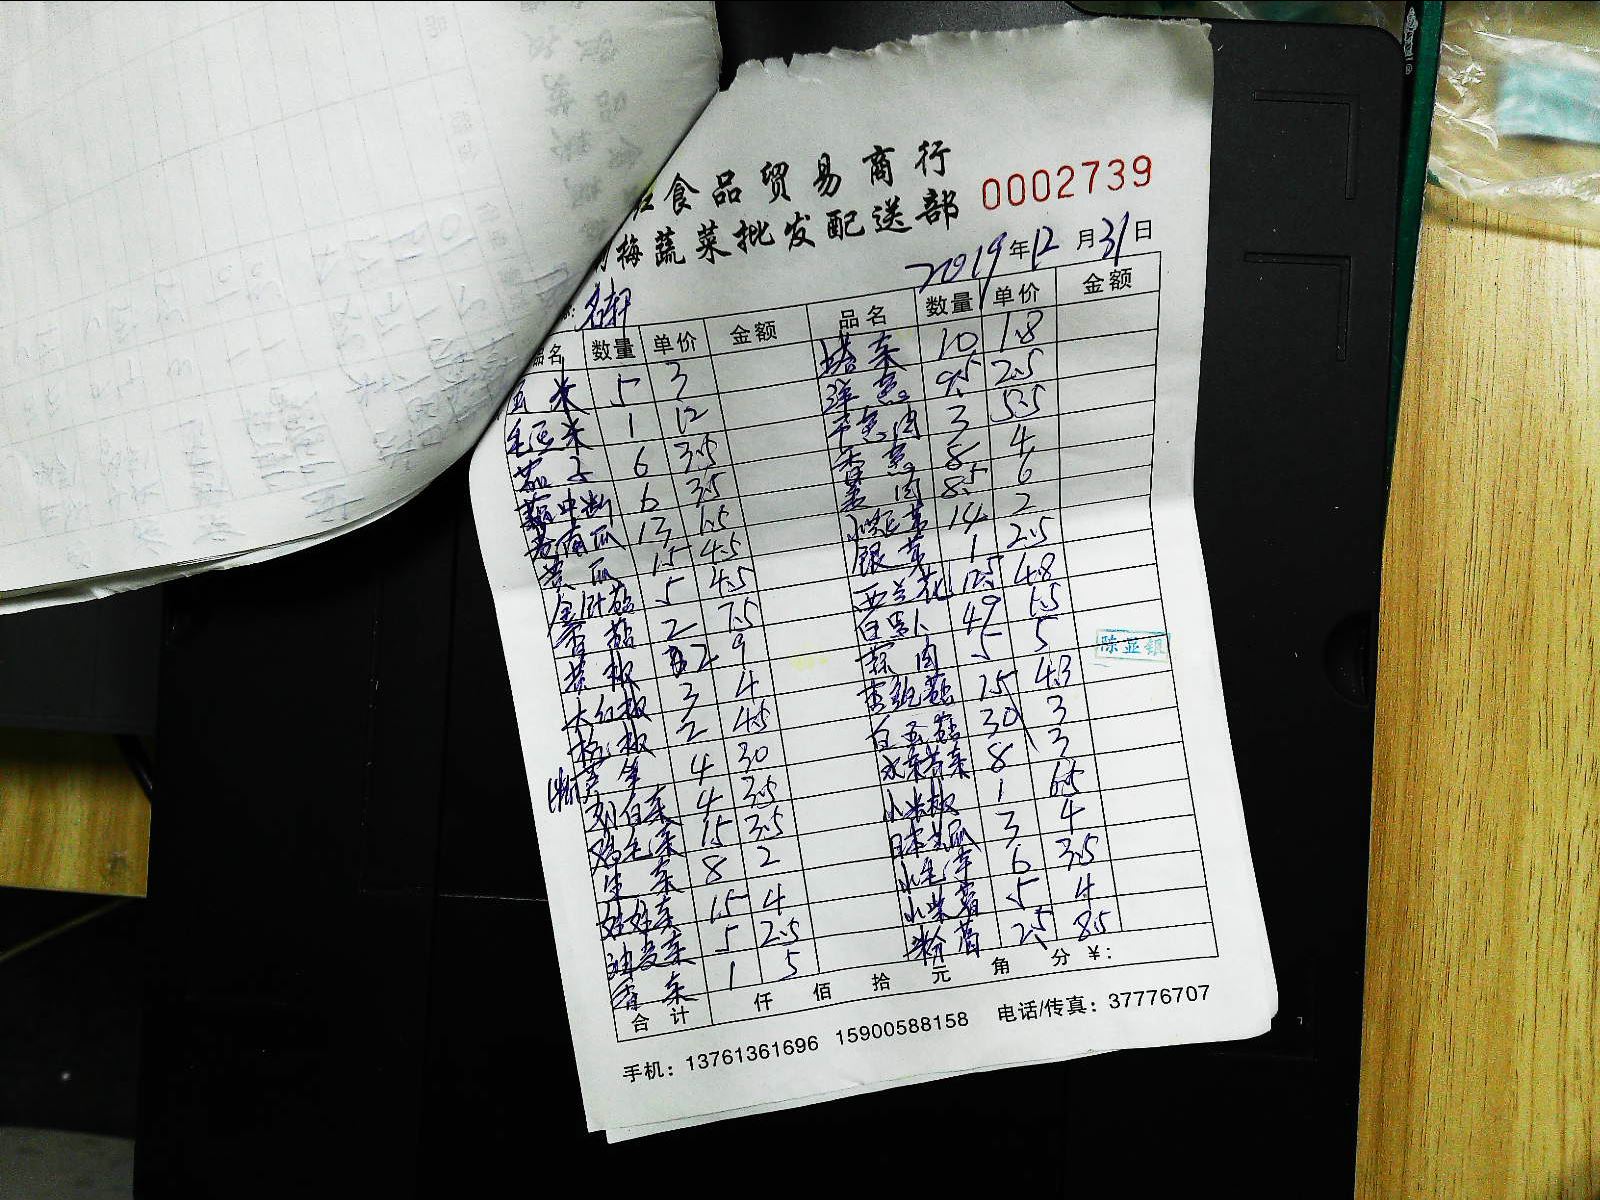 食品贸易商行
梅蔬菜批发配送部
0002739
2019年12月31日
名轩
品名 数量 单价 金额 品名 数量 单价 金额
玉米 5 3 塔菜 10 1.8
毛豆米 1 12 洋葱 9.5 2.5
茄子 6 3.5 3 5.5
藕中断 6 3.5 香葱 8 4
老南瓜 13 1.5 姜肉 8.5 6
黄瓜 15 4.5 小黄豆芽 14 2
金针菇 5 4.5 银芽 1 2.5
香菇 2 7.5 西兰花 12.5 4.8
黄椒 2 9 白萝卜 49 1.5
大红椒 3 4 蒜肉 5 5
杭椒 2 4.5 杏鲍菇 15 4.3
芦笋 4 30 白玉菇 30 3
刘白菜 4 3.5 水东芥菜 8 3
鸡毛菜 15 3.5 小米椒 1 6.5
生菜 8 2 日本南瓜 3 4
娃娃菜 15 4 小毛芋 6 3.5
油麦菜 5 2.5 小紫薯 5 4
香菜 1 5 粉葛 2.5 8.5
陈亚银
合计 仟 佰 拾 元 角 分 ¥:
手机：13761361696 15900588158 电话/传真：37776707